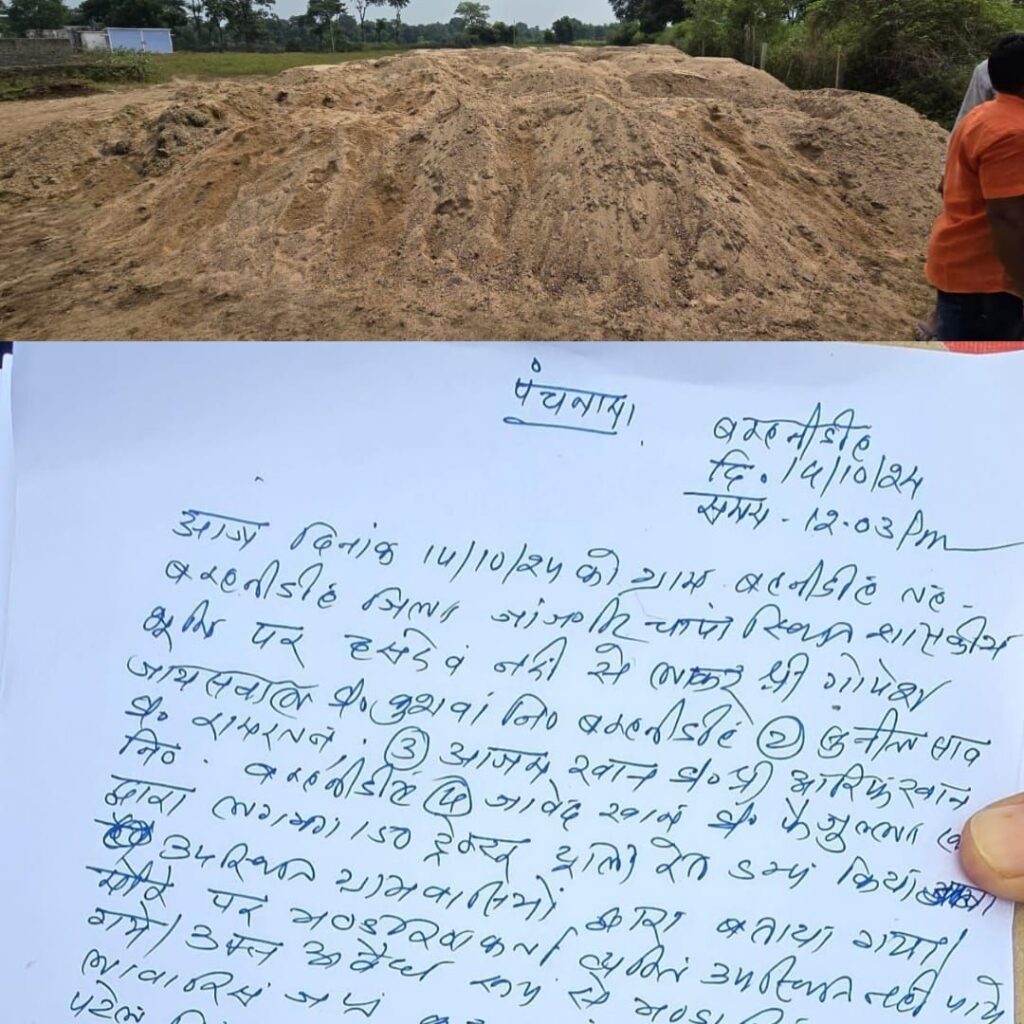 पंचनामा
बम्हनीडीह
दि. 14/10/24
समय - 12.03 Pm
आज दिनांक 14/10/24 को ग्राम बम्हनीडीह तह.
बम्हनीडीह जिला जांजगीर चांपा स्थित शासकीय
भूमि पर हसदेव नदी से लाकर श्री गोपेश
जायसवाल नि० बम्हनीडीह ② सुनील साव
③ आजम खान श्री आरिफ खान
नि० बम्हनीडीह ④ जावेद खान
द्वारा लगभग 150 ट्रेक्टर ट्राली रेत डम्प किया
उपस्थित ग्रामवासियों द्वारा बताया गया।
मौके पर भण्डारणकर्ता व्यक्ति उपस्थित नही पाये
गये। उक्त अवैध रूप से
लावारिस जप्त
पटेल